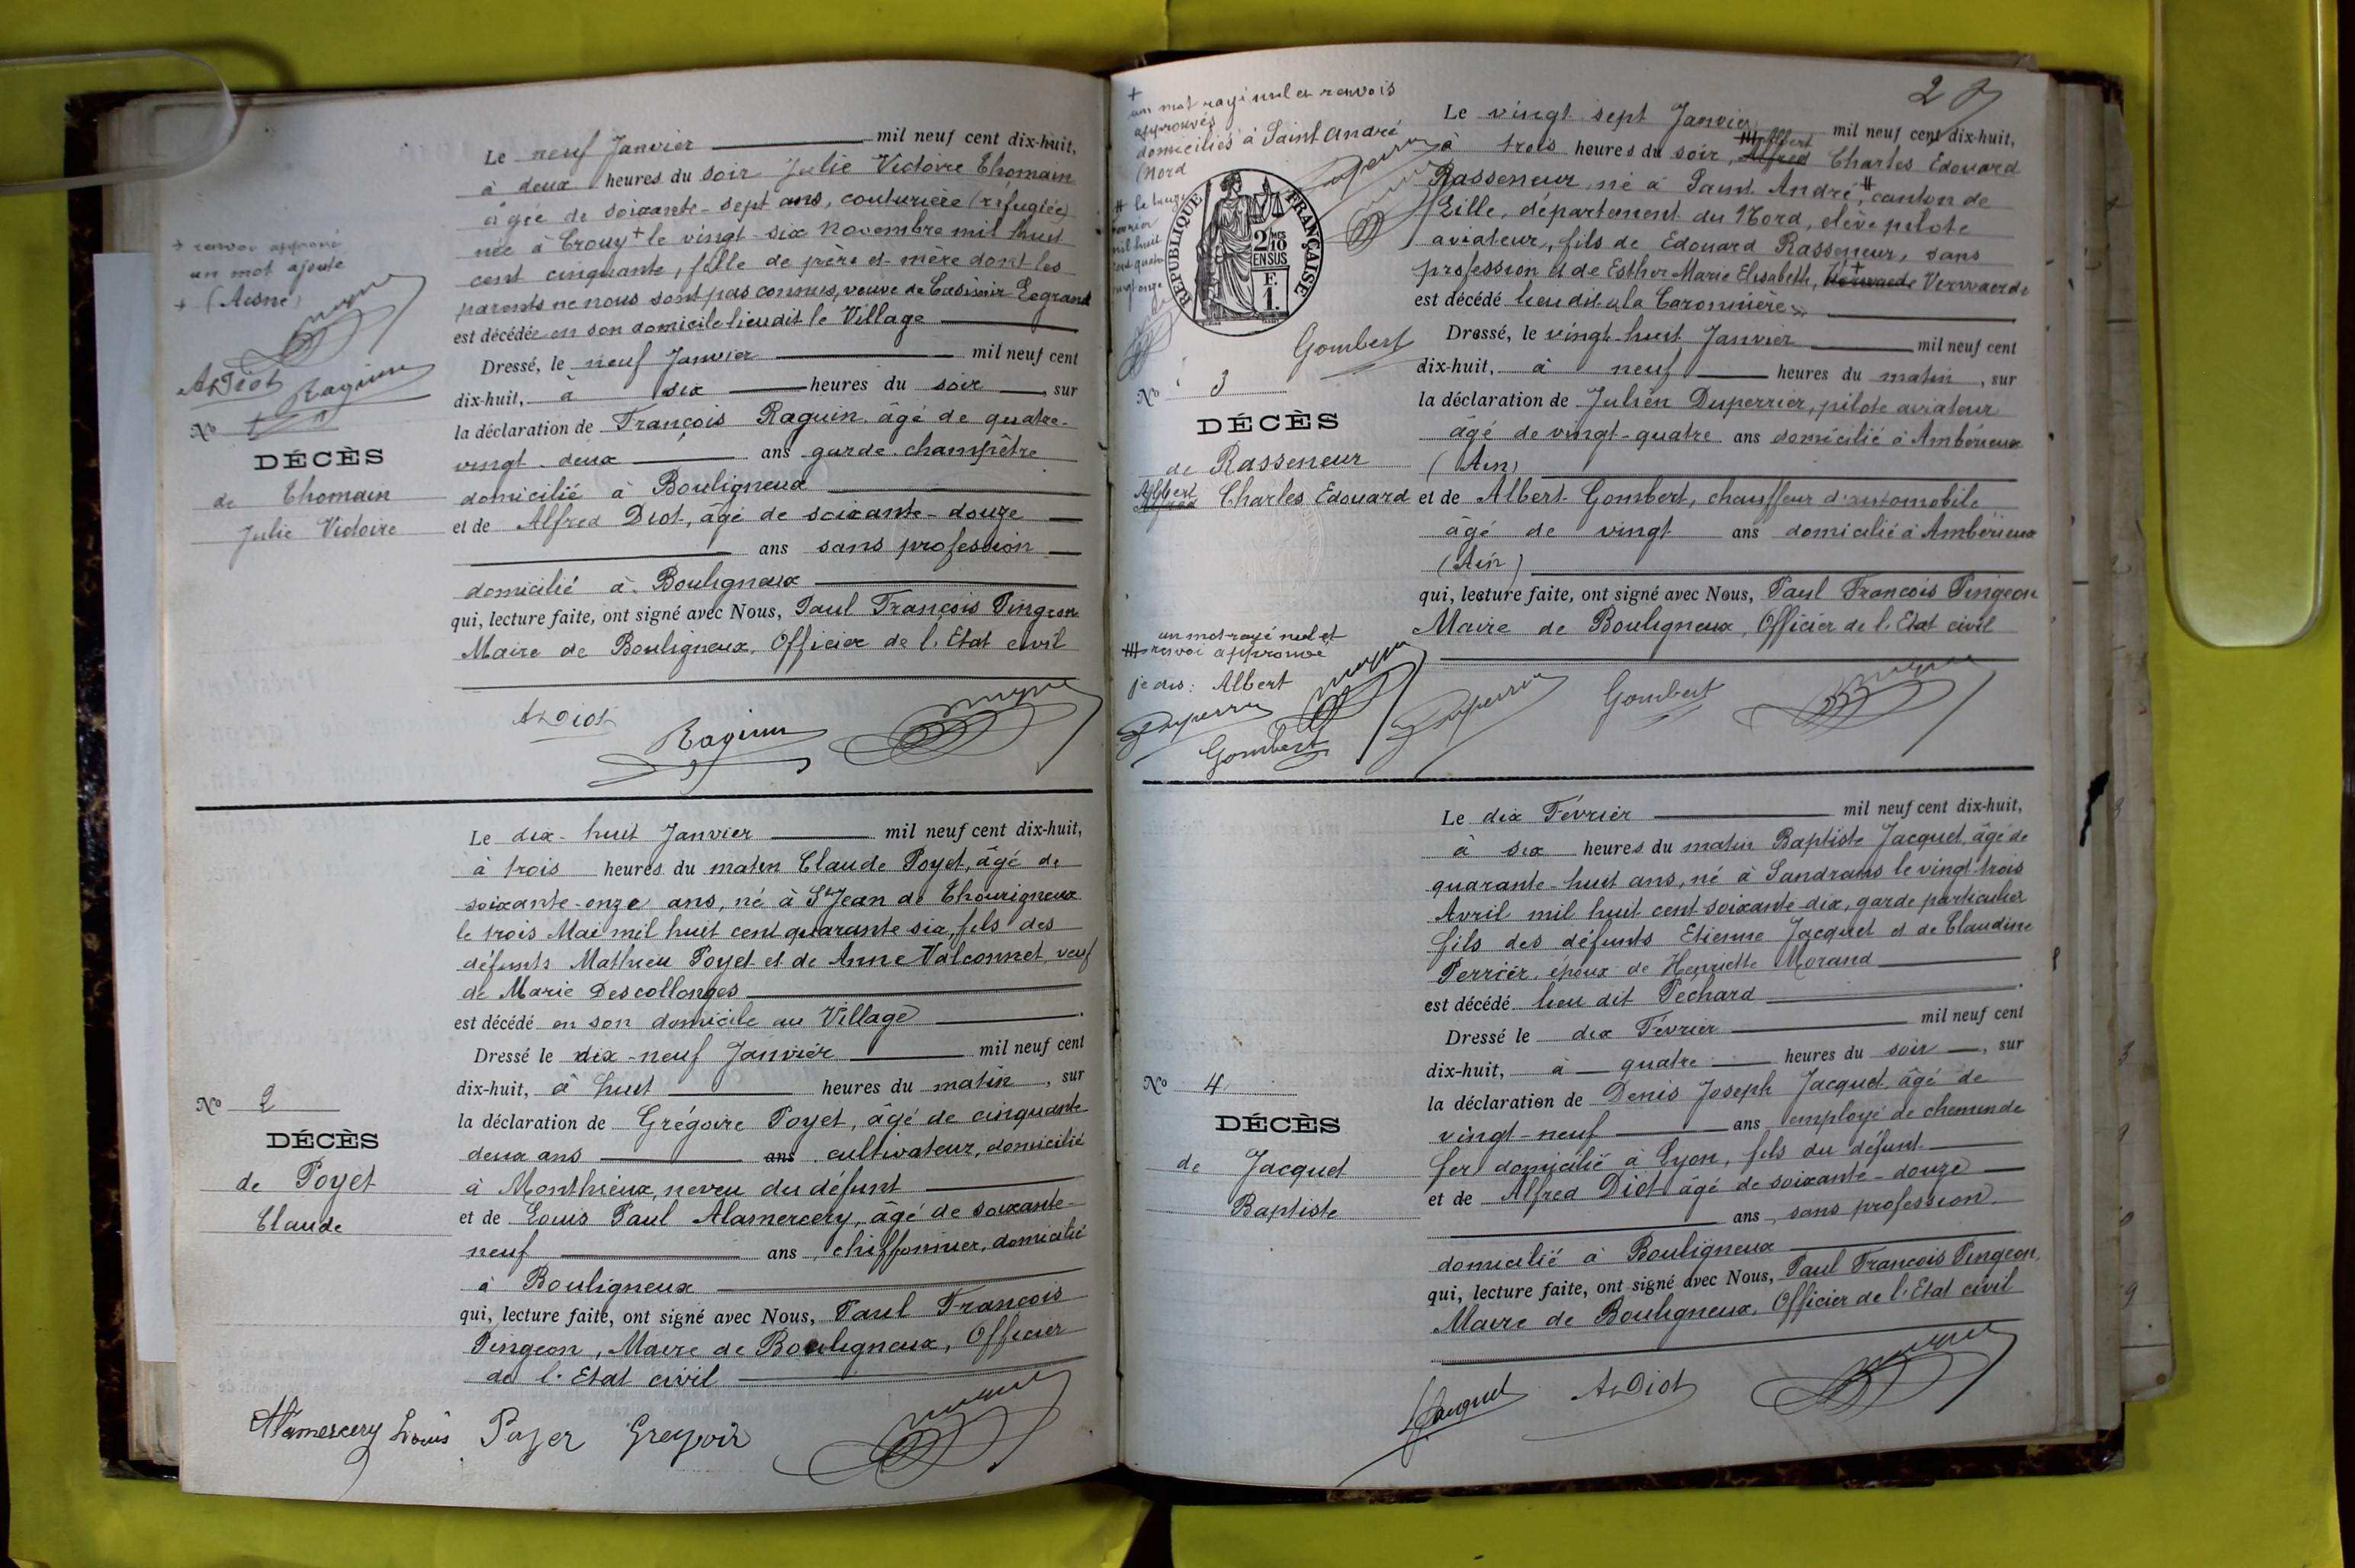 Le neuf Janvier mil neuf cent dix-huit,
à deux heures du soir Julie Victoire Thomain
âgée de soixante-sept ans, couturière (réfugiée)
née à Crouy + le vingt-six Novembre mil huit
cent cinquante, fille de père et mère dont les
parents ne nous sont pas connus, veuve de Casimir Legrand
est décédée en son domicile lieu dit le Village
Dressé, le neuf Janvier mil neuf cent
dix-huit, à six heures du soir, sur
la déclaration de François Raguin, âgé de quatre-
vingt-deux ans garde-champêtre
domicilié à Bouligneux
et de Alfred Diot, âgé de soixante-douze
ans sans profession
domicilié à Bouligneux
qui, lecture faite, ont signé avec Nous, Paul François Pingeon
Maire de Bouligneux, Officier de l'Etat civil
+ renvoi approuvé
un mot ajouté
+ (Aisne)
A Diot
Raguin
No 1
DÉCÈS
de Thomain
Julie Victoire
A Diot
Raguin
Le dix-huit Janvier mil neuf cent dix-huit,
à trois heures du matin Claude Poyet, âgé de
soixante-onze ans, né à St Jean de Thourigneux
le trois Mai mil huit cent quarante six, fils des
défunts Mathieu Poyet et de Anne Valconnet, veuf
de Marie Descollonges
est décédé en son domicile au Village
Dressé le dix-neuf Janvier mil neuf cent
dix-huit, à huit heures du matin, sur
la déclaration de Grégoire Poyet, âgé de cinquante
deux ans ans cultivateur, domicilié
à Monthieux, neveu du défunt
et de Louis Paul Alamercery, âgé de soixante-
neuf ans, chiffonnier, domicilié
à Bouligneux
qui, lecture faite, ont signé avec Nous, Paul François
Pingeon, Maire de Bouligneux, Officier
de l'Etat civil
No 2
DÉCÈS
de Poyet
Claude
Alamercery Louis Poyer Gregoir
2
+
un mot rayé nul et renvois
approuvés
domiciliés à Saint André
(Nord
RÉPUBLIQUE FRANÇAISE
2/10 EN SUS
F. 1
Gombert
No 3
DÉCÈS
de Rasseneur
Albert
Alfred Charles Edouard
un mot rayé nul et
renvoi approuvé
je dis : Albert
Duperrier
Gombert
Le vingt-sept Janvier mil neuf cent dix-huit,
Albert
à trois heures du soir, Alfred Charles Edouard
Rasseneur, né à Saint André, # canton de
Lille, département du Nord, élève pilote
aviateur, fils de Edouard Rasseneur, sans
profession et de Esther Marie Elisabeth, Vervaerde
est décédé lieu dit à la Caronnière
Dressé, le vingt-huit Janvier mil neuf cent
dix-huit, à neuf heures du matin, sur
la déclaration de Julien Duperrier, pilote aviateur
âgé de vingt-quatre ans domicilié à Ambérieux
(Ain)
et de Albert Gombert, chauffeur d'automobile
âgé de vingt ans domicilié à Ambérieux
(Ain)
qui, lecture faite, ont signé avec Nous, Paul François Pingeon
Maire de Bouligneux, Officier de l'Etat civil
Duperrier Gombert
Le dix Février mil neuf cent dix-huit,
à six heures du matin Baptiste Jacquet, âgé de
quarante-huit ans, né à Sandrans le vingt-trois
Avril mil huit cent soixante-dix, garde particulier
fils des défunts Etienne Jacquet et de Claudine
Perrier, époux de Henriette Morand
est décédé lieu dit Péchard
Dressé le dix Février mil neuf cent
dix-huit, à quatre heures du soir, sur
la déclaration de Denis Joseph Jacquet, âgé de
vingt-neuf ans employé de chemin de
fer domicilié à Lyon, fils du défunt
et de Alfred Diot âgé de soixante-douze
ans, sans profession
domicilié à Bouligneux
qui, lecture faite, ont signé avec Nous, Paul François Pingeon,
Maire de Bouligneux, Officier de l'Etat civil
No 4
DÉCÈS
de Jacquet
Baptiste
Jacquet A Diot